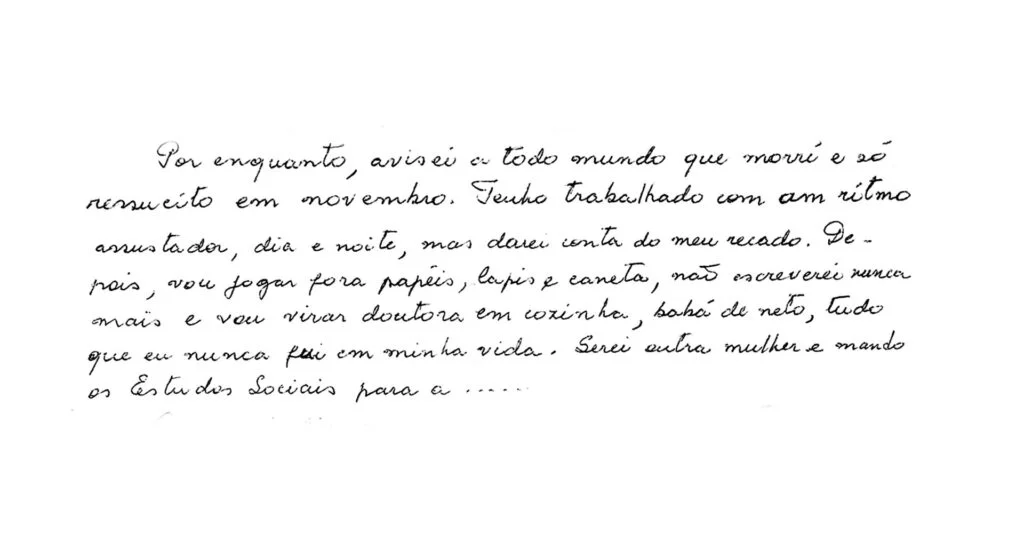 Por enquanto, avisei a todo mundo que morri e só
ressucito em novembro. Tenho trabalhado com um ritmo
assustador, dia e noite, mas darei conta do meu recado. De-
pois, vou jogar fora papéis, lapis e caneta, não escreverei nunca
mais e vou virar doutora em cozinha, babá de neto, tudo
que eu nunca fui em minha vida. Serei outra mulher e mando
os Estudos Sociais para a ......